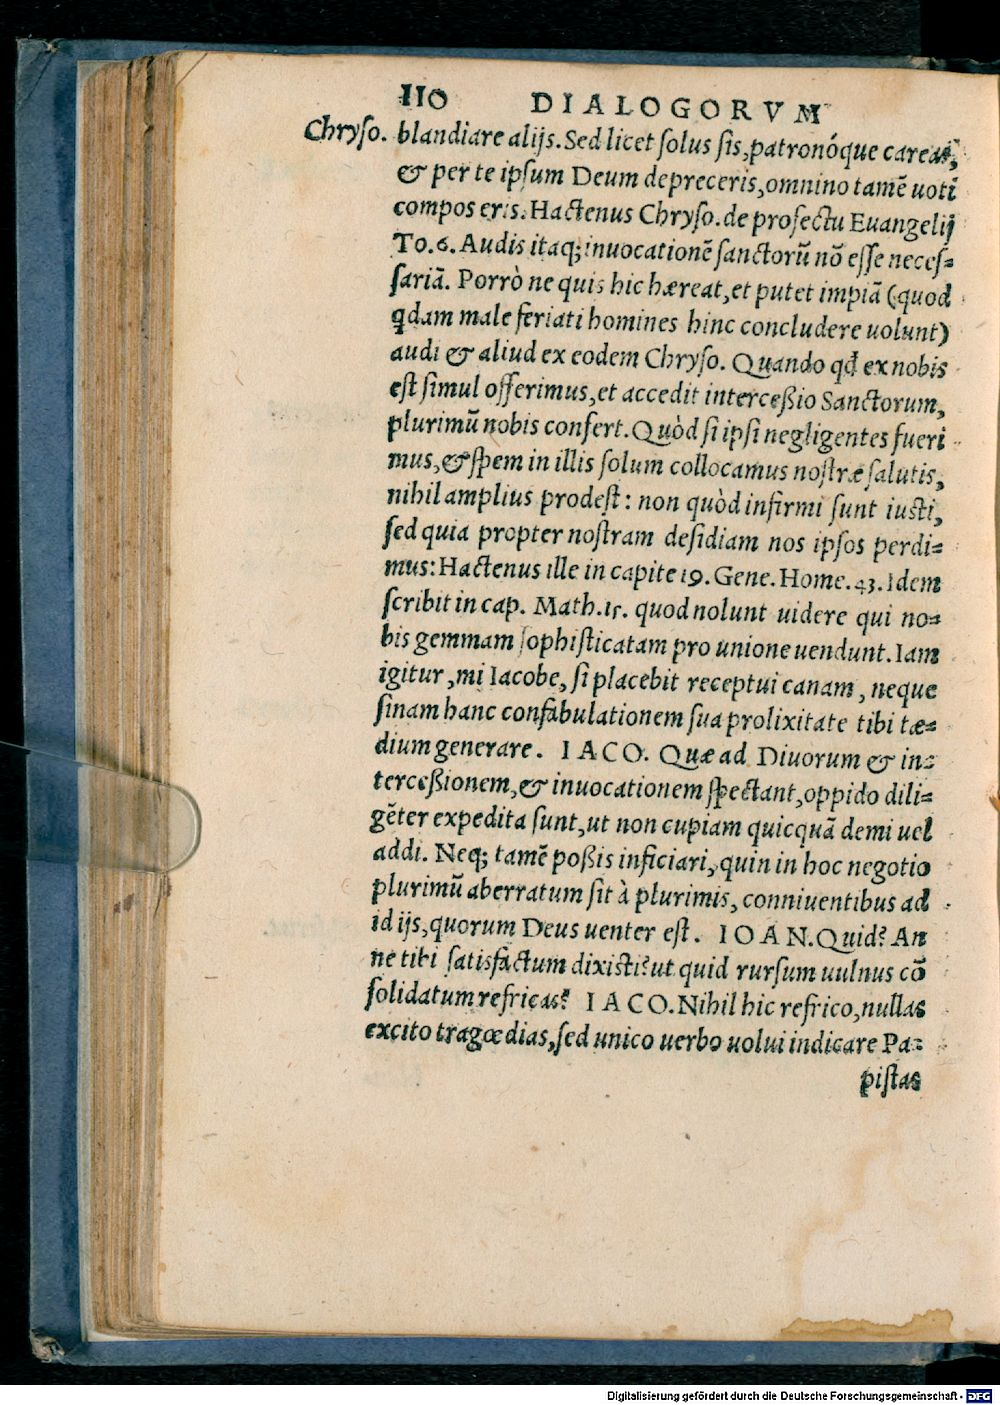 110 DIALOGORVM
Chryso. blandiare alijs. Sed licet solus sis, patronóque careas,
& per te ipsum Deum depreceris, omnino tamē uoti
compos eris. Hactenus Chryso. de profectu Euangelij
To. 6. Audis itaq; inuocationē sanctorū nō esse neces=
sariā. Porrò ne quis hic hæreat, et putet impiā (quod
qdam male feriati homines hinc concludere uolunt)
audi & aliud ex eodem Chryso. Quando qd ex nobis
est simul offerimus, et accedit intercessio Sanctorum,
plurimū nobis confert. Quòd si ipsi negligentes fueri
mus, & spem in illis solum collocamus nostræ salutis,
nihil amplius prodest: non quòd infirmi sunt iusti,
sed quia propter nostram desidiam nos ipsos perdi=
mus: Hactenus ille in capite 19. Gene. Home. 43. Idem
scribit in cap. Math. 15. quod nolunt uidere qui no=
bis gemmam sophisticatam pro unione uendunt. Iam
igitur, mi Iacobe, si placebit receptui canam, neque
sinam hanc confabulationem sua prolixitate tibi tæ=
dium generare. IACO. Quæ ad Diuorum & in=
tercessionem, & inuocationem spectant, oppido dili=
gēter expedita sunt, ut non cupiam quicquā demi uel
addi. Neq; tamē possis inficiari, quin in hoc negotio
plurimū aberratum sit à plurimis, conniuentibus ad
id ijs, quorum Deus uenter est. IOAN. Quid? An
ne tibi satisfactum dixisti? ut quid rursum uulnus cō
solidatum refricas? IACO. Nihil hic refrico, nullas
excito tragœdias, sed unico uerbo uolui indicare Pa=
pistas
Digitalisierung gefördert durch die Deutsche Forschungsgemeinschaft - DFG